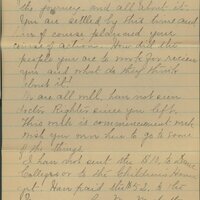 the journey, and all about it.
You are settled by this time and
have of course planned your
course of action. How did the
people you are to work for receive
you and what do they think
about it.
We are all well, have not seen
Doctor Righter since you left.
This week is commencement week,
wish you were here to go to some
of the things.
I have not sent the B.N. to
to the Childrens Home
yet. Have paid the to the